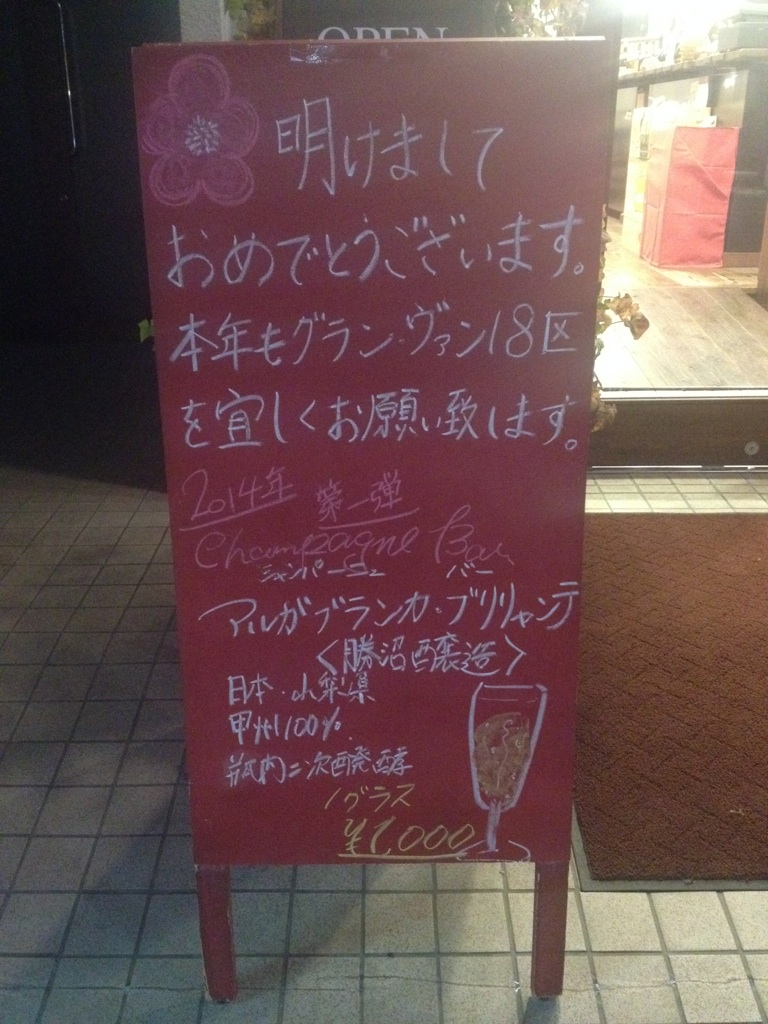 OPEN
明けまして
おめでとうございます。
本年もグラン・ヴァン18区
を宜しくお願い致します。
2014年 第一弾
Champagne Bar
シャンパーニュ バー
アルガブランカ・ブリリャンテ
<勝沼醸造>
日本・山梨県
甲州100%
瓶内二次醗酵
1グラス
¥1,000